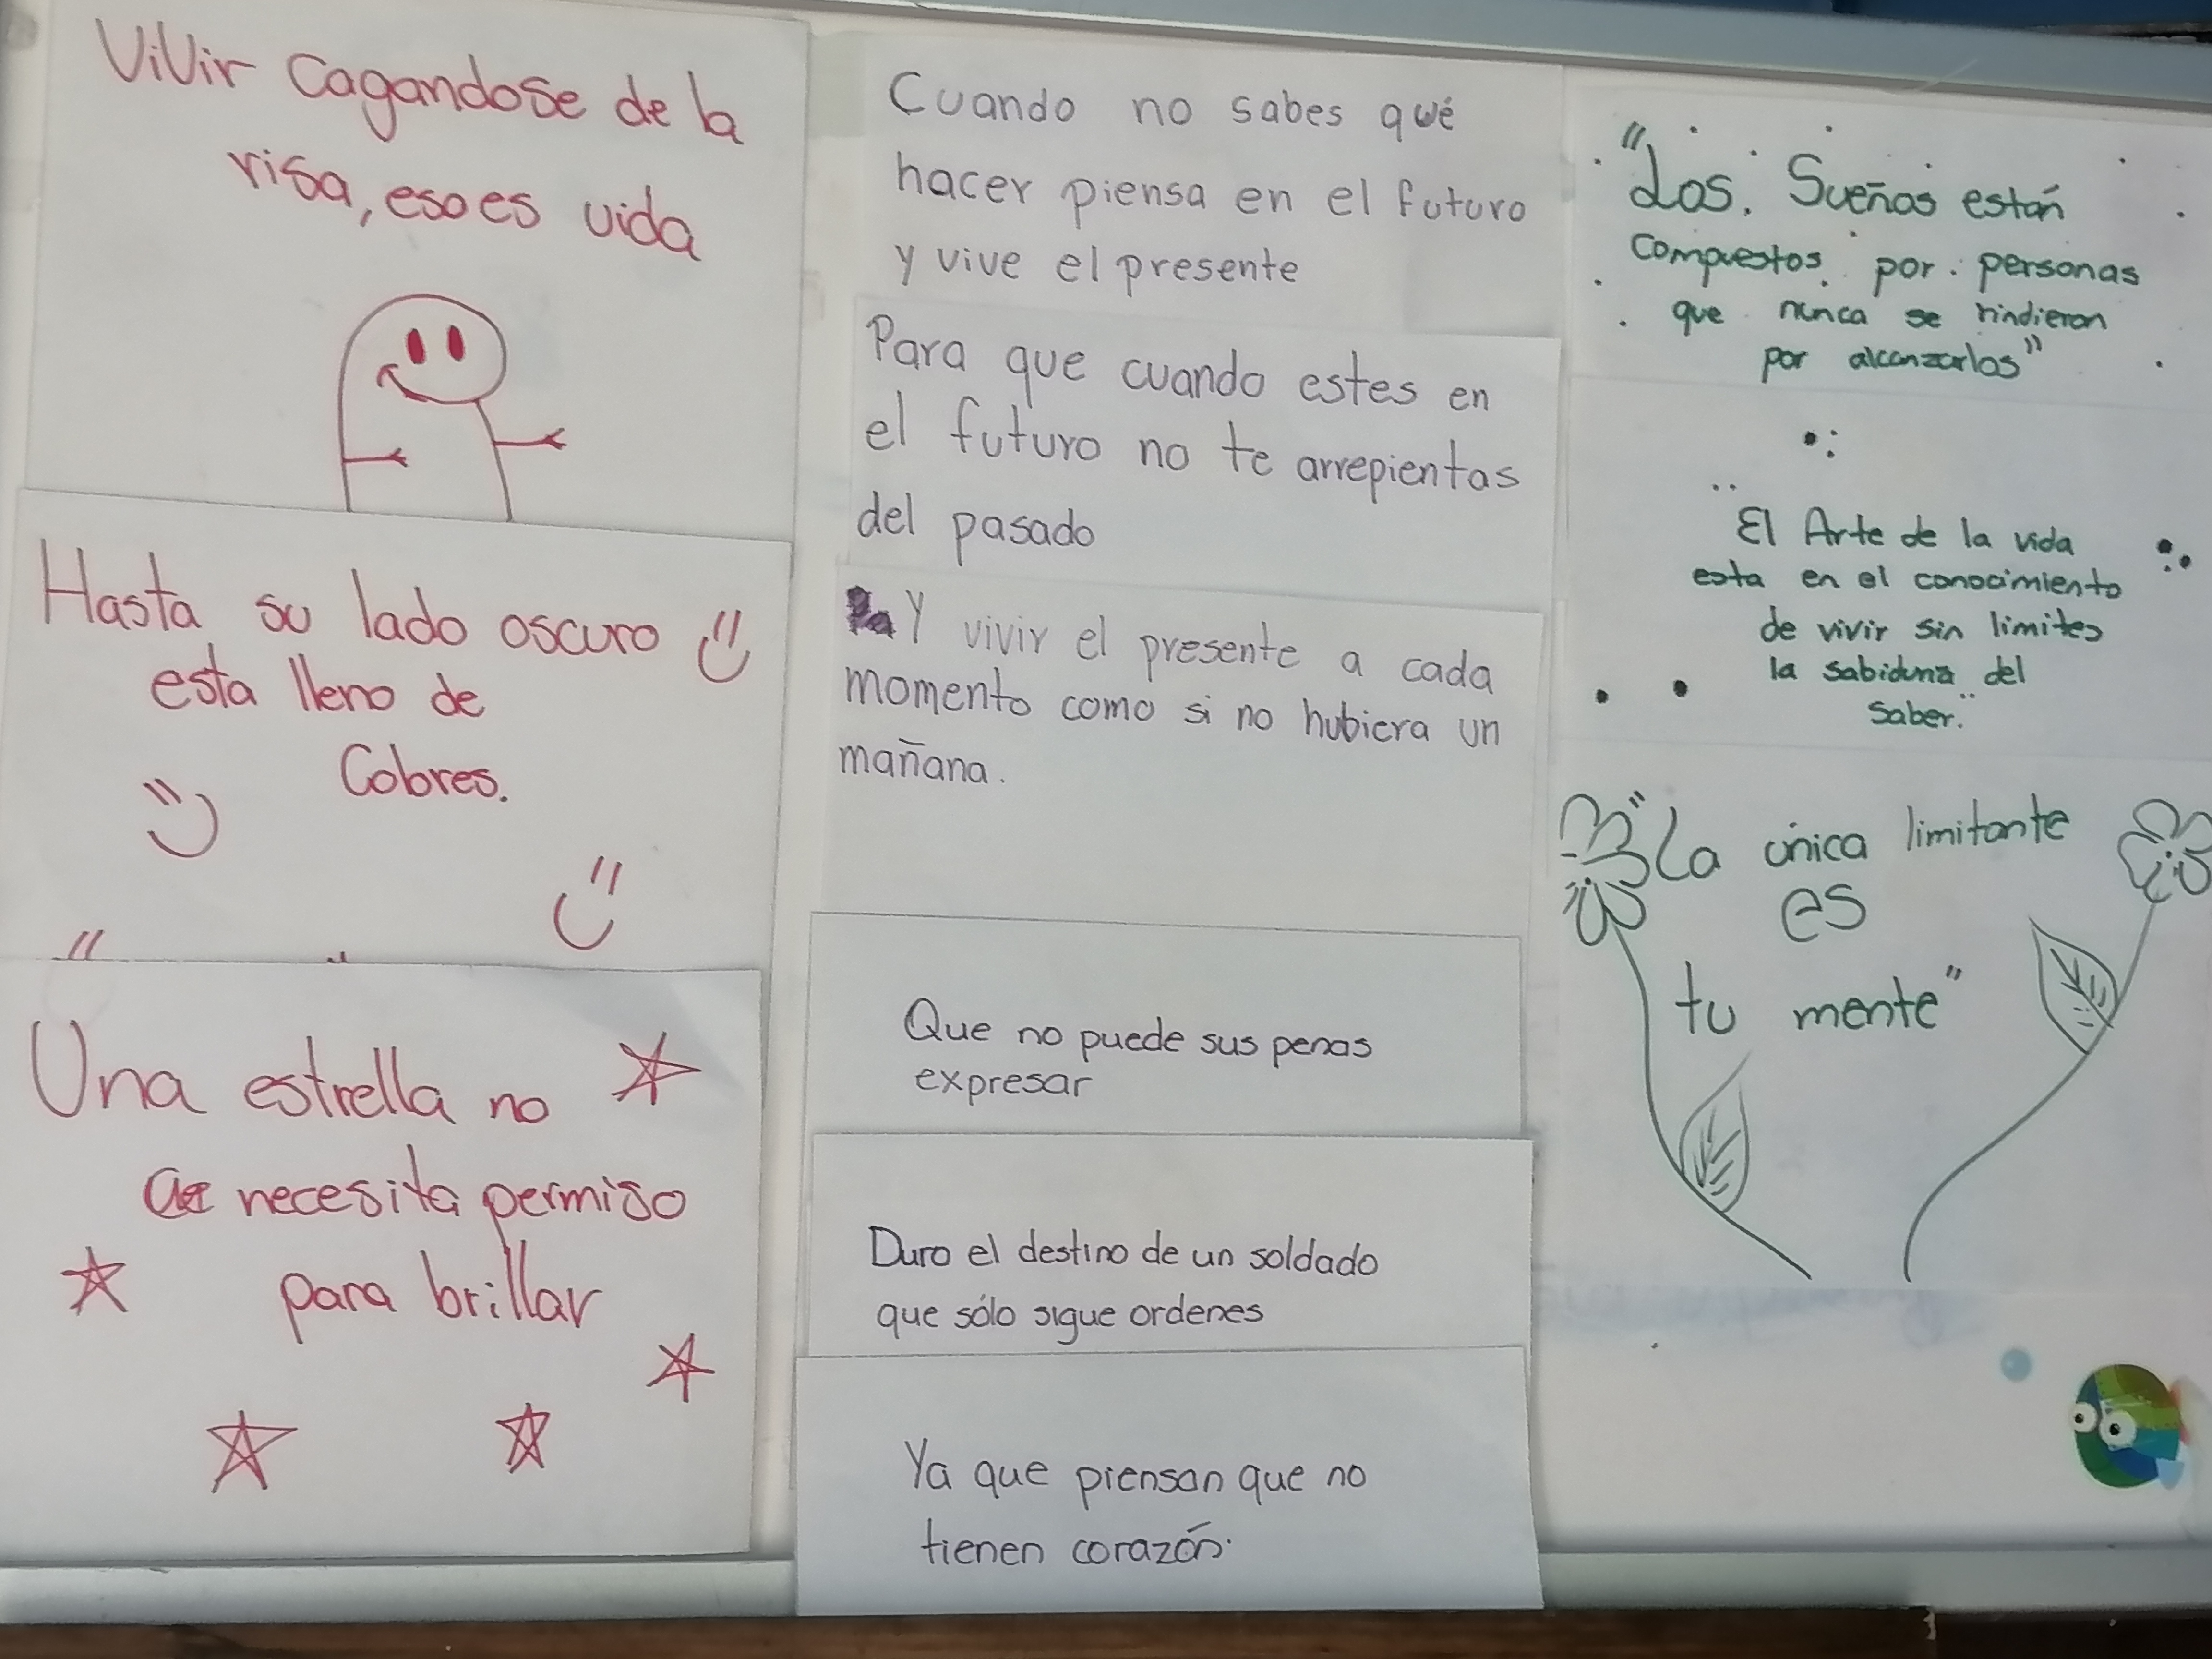 ViVir cagandose de la
risa, eso es vida
Hasta su lado oscuro
esta lleno de
Colores.
Una estrella no
necesita permiso
para brillar
Cuando no sabes qué
hacer piensa en el futuro
y vive el presente
Para que cuando estes en
el futuro no te arrepientas
del pasado
Y vivir el presente a cada
momento como si no hubiera un
mañana.
Que no puede sus penas
expresar
Duro el destino de un soldado
que sólo sigue ordenes
Ya que piensan que no
tienen corazón.
"Los Sueños están
Compuestos por personas
que nunca se rindieron
por alcanzarlos"
El Arte de la vida
esta en el conocimiento
de vivir sin limites
la sabiduria del
saber."
"La única limitante
es
tu mente"